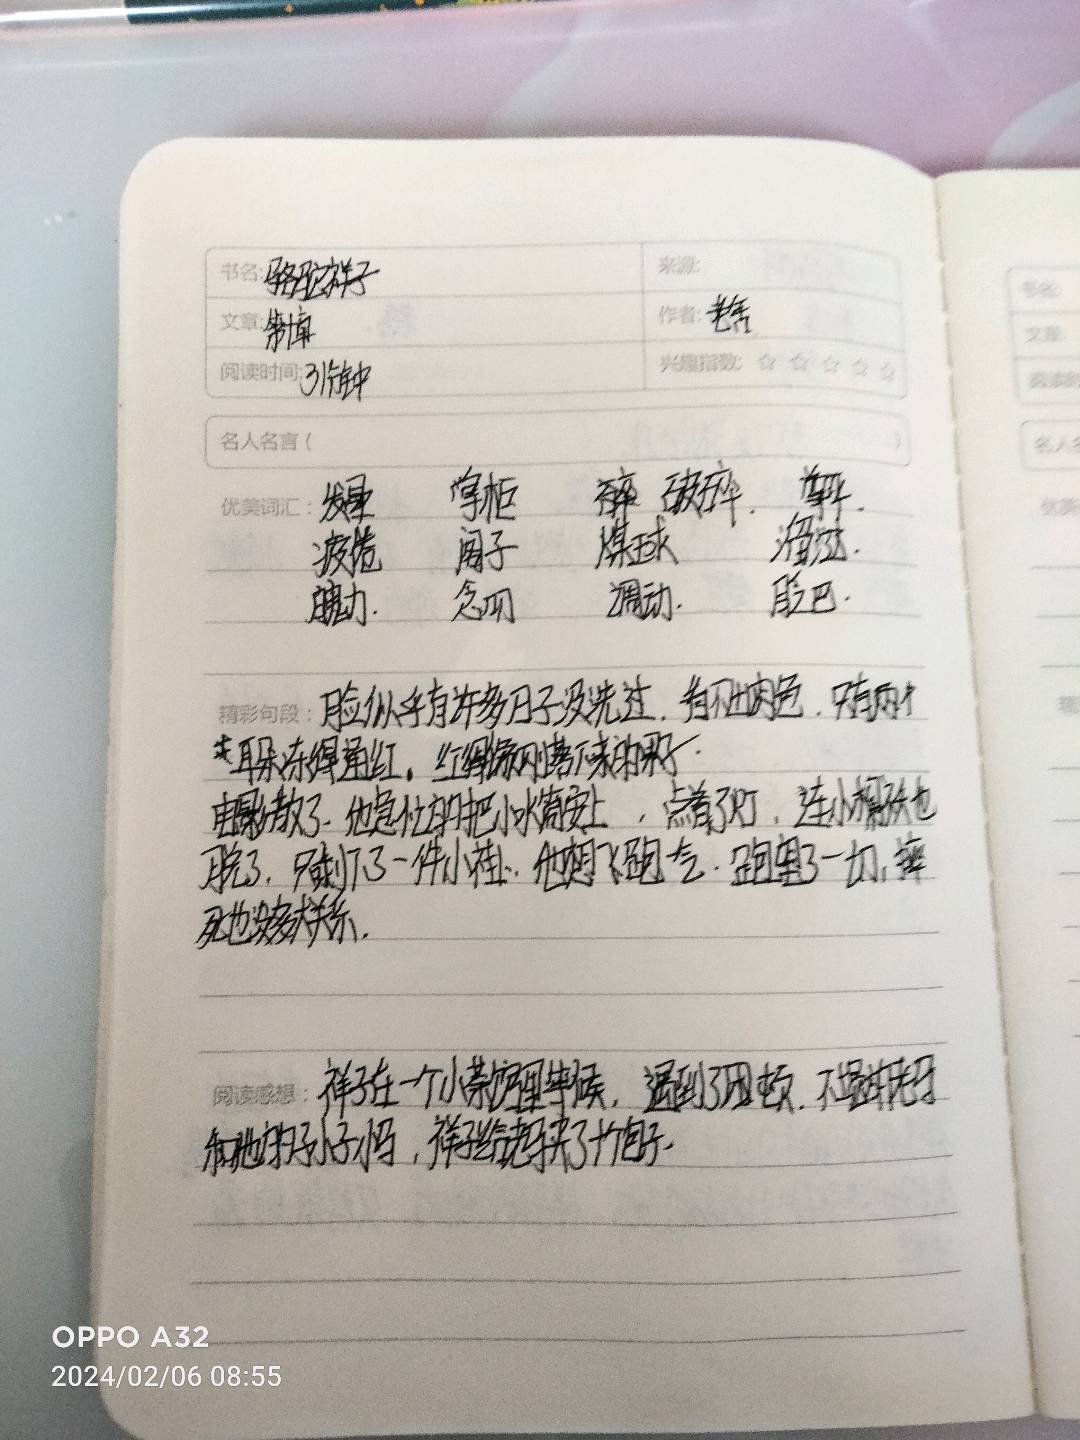 书名:骆驼祥子 来源:
文章:第十章 作者:老舍
阅读时间:31分钟 兴趣指数:☆☆☆☆☆
名人名言( )
优美词汇:发晕 掌柜 破碎.
疲倦 阁子 煤球
魄力. 念叨 调动. 脸巴.
精彩句段:脸似乎有许多日子没洗过.看不出肉色.只有两个
耳朵冻得通红。红得像刚落下来的果子.
电影散了.他急忙的把小水筒安上,点着了灯,连小棉袄也
脱了.只剩了一件小褂.他想飞跑一气.跑忘了一切,摔
死也没多大关系.
阅读感想:祥子在一个小茶馆里等候,遇到了困
和他的孙子小马,祥子给老马买了十个包子.
OPPO A32
2024/02/06 08:55